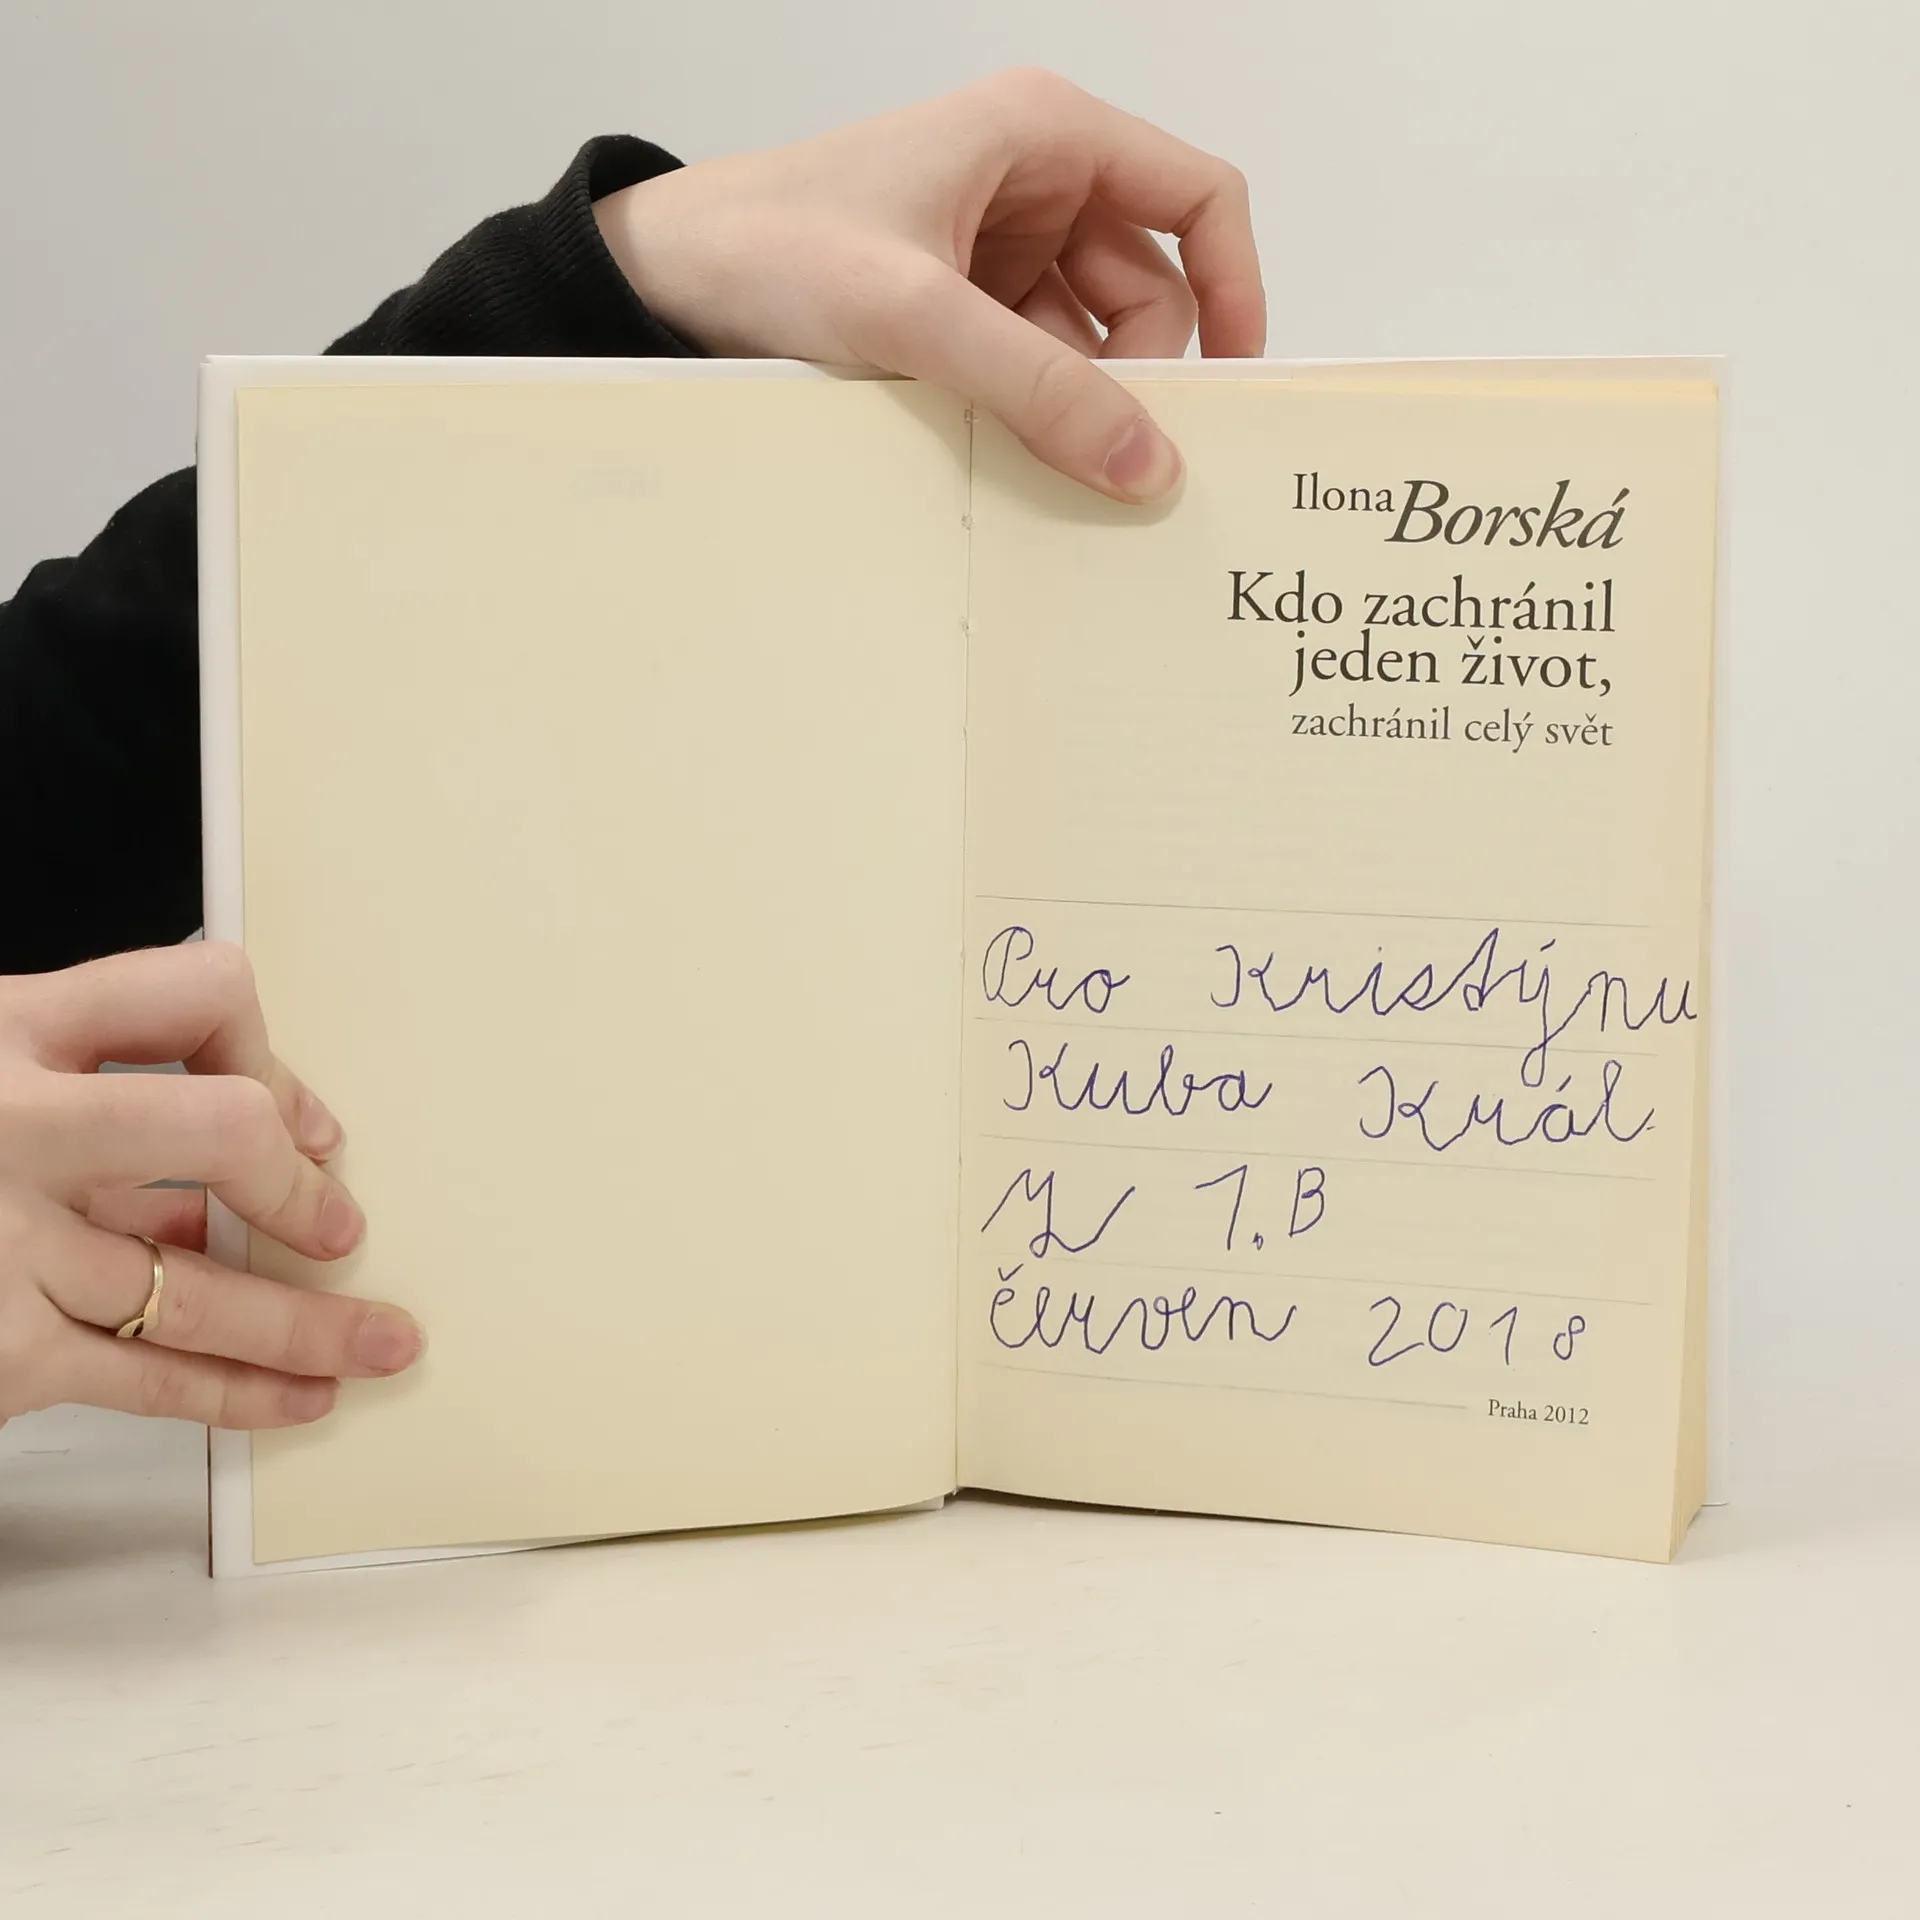 Ilona Borská
Kdo zachránil
jeden život,
zachránil celý svět
Pro Kristýnu
Kuba Král
Z 1.B
červen 2018
Praha 2012